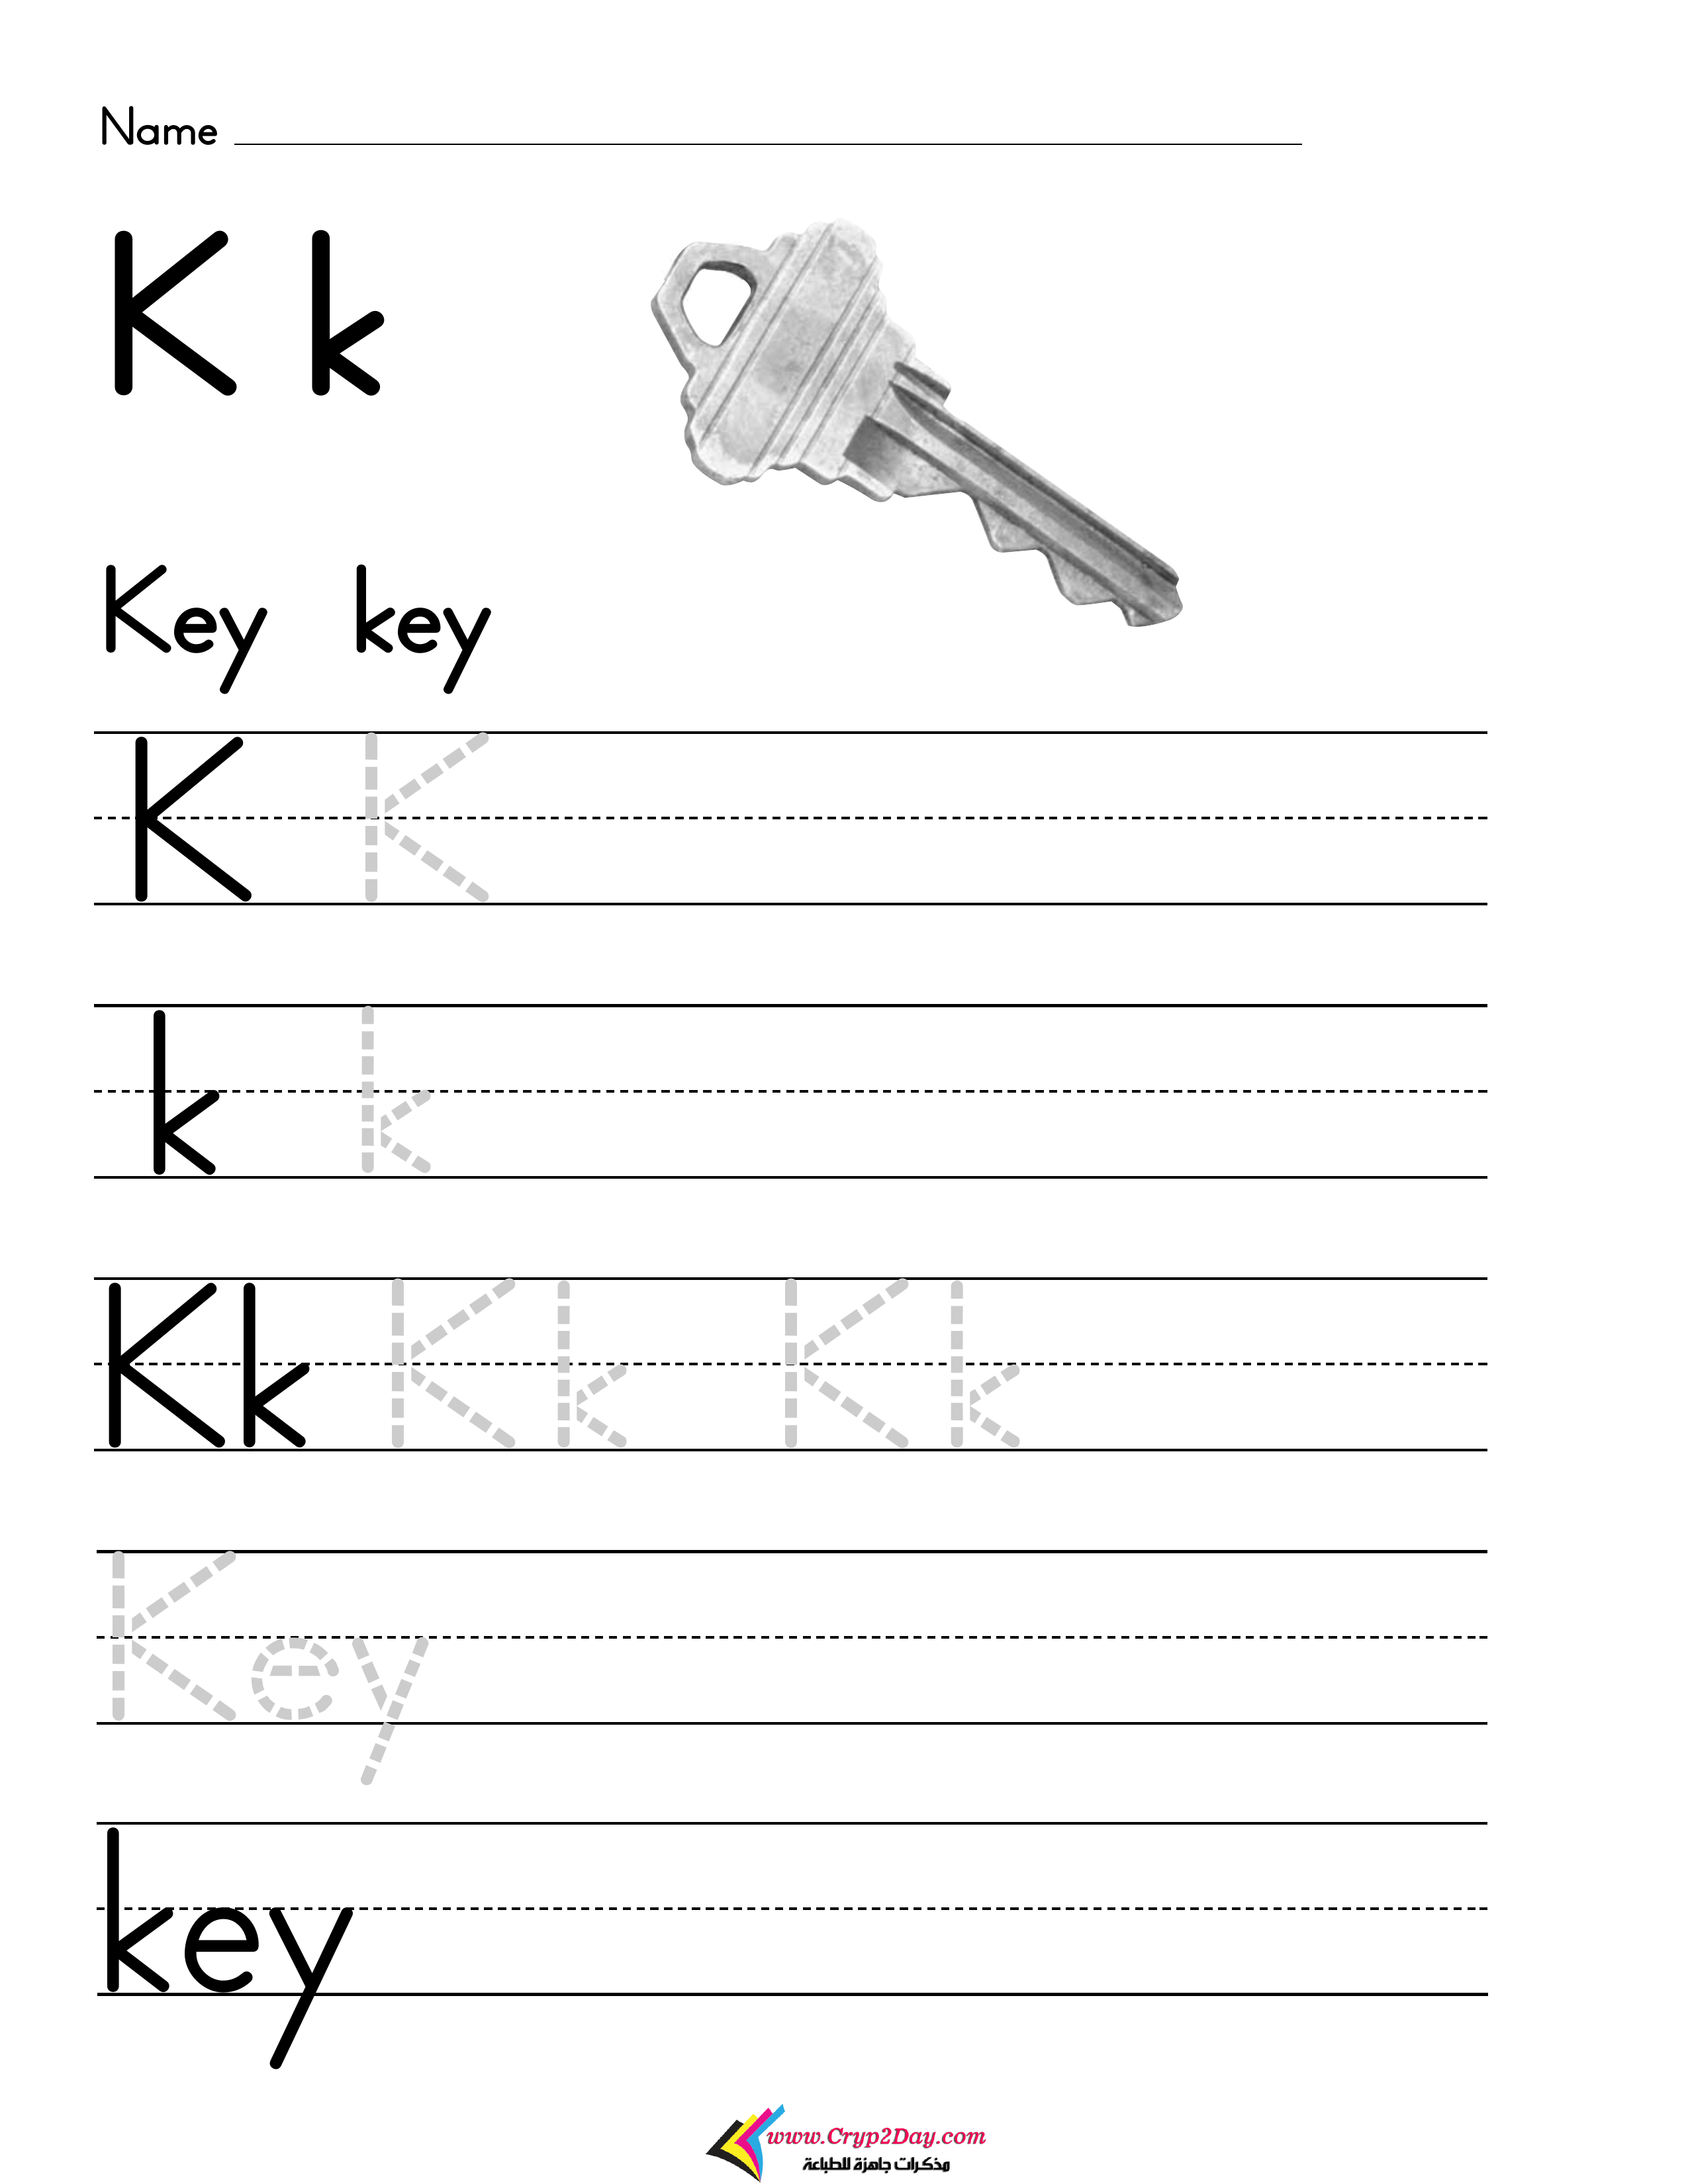 Name
K k
Key key
K K
k k
Kk Kk Kk
Key
key
www.Cryp2Day.com
مذكرات جاهزة للطباعة